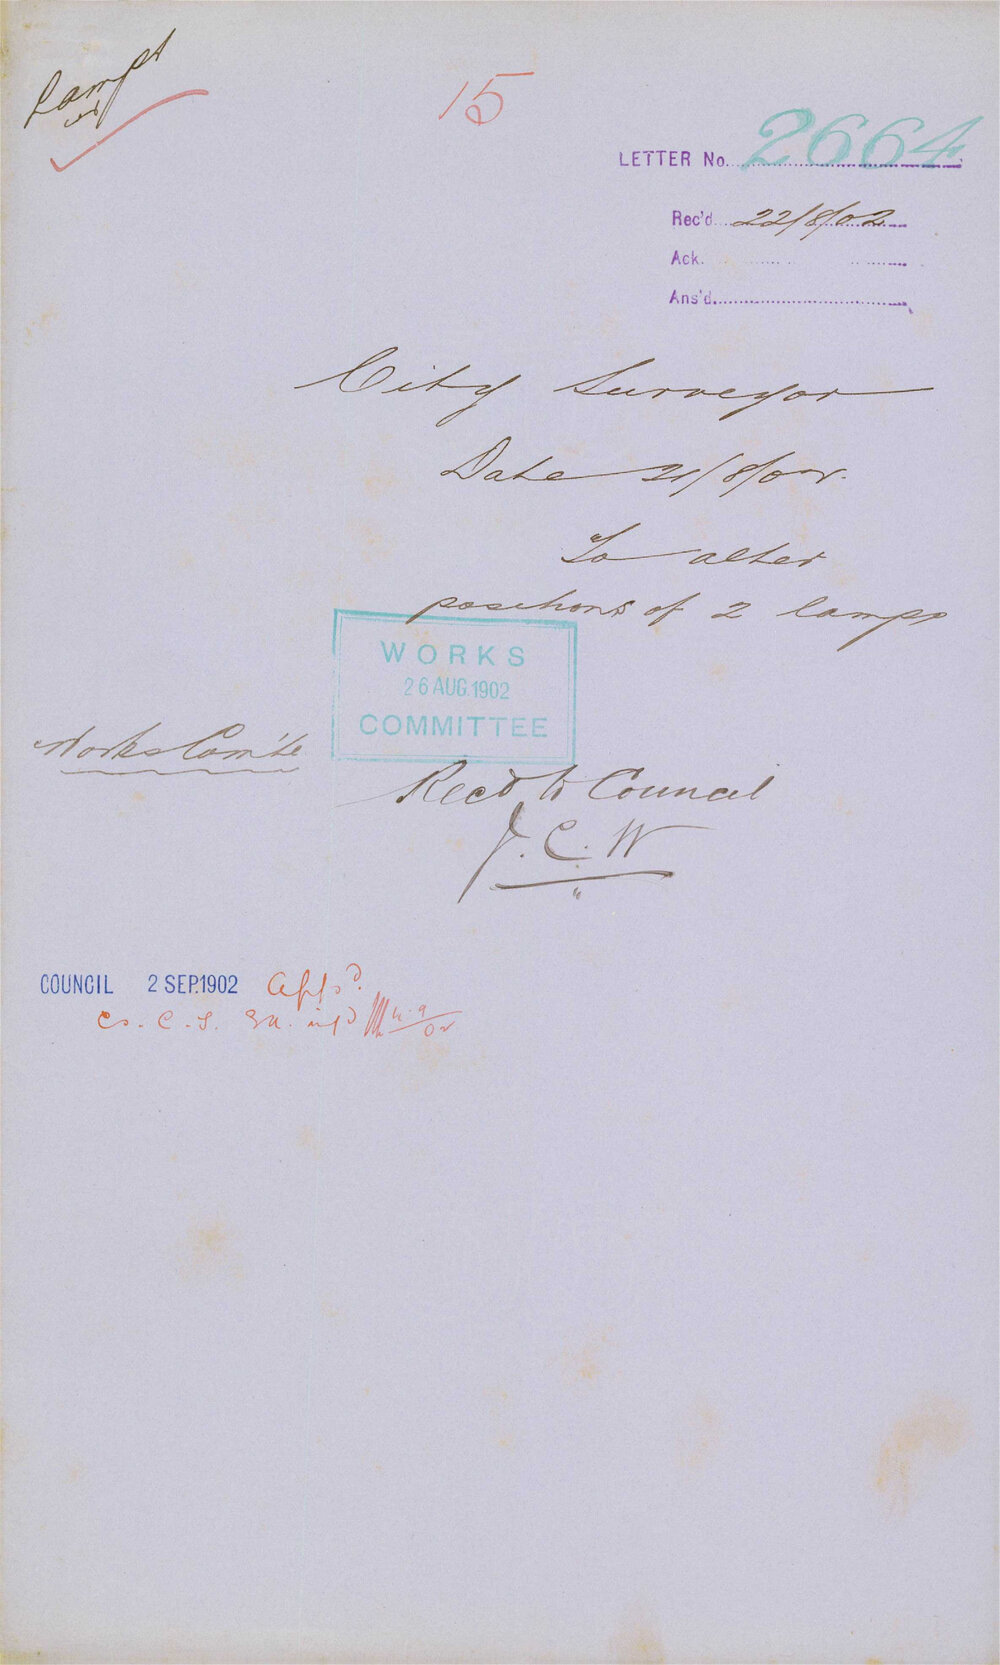 Lamps
15
LETTER No. 2664
Rec'd. 22/8/02
Ack.
Ans'd.
City Surveyor
Date 21/8/02.
To alter
positions of 2 lamps
WORKS
26 AUG. 1902
COMMITTEE
Works Com'te
Rec'd to Council
J. C. W
COUNCIL 2 SEP. 1902 App'd.
C.S. inf'd 4.9/02